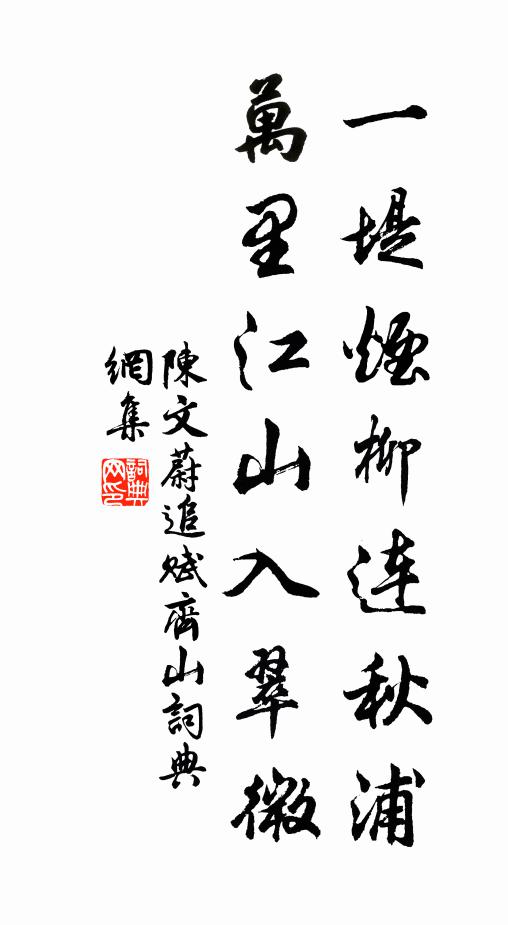 一堤煙柳連秋浦
萬里江山入翠微
陳文蔚追賦齊山詞典
網集
詞典
网印